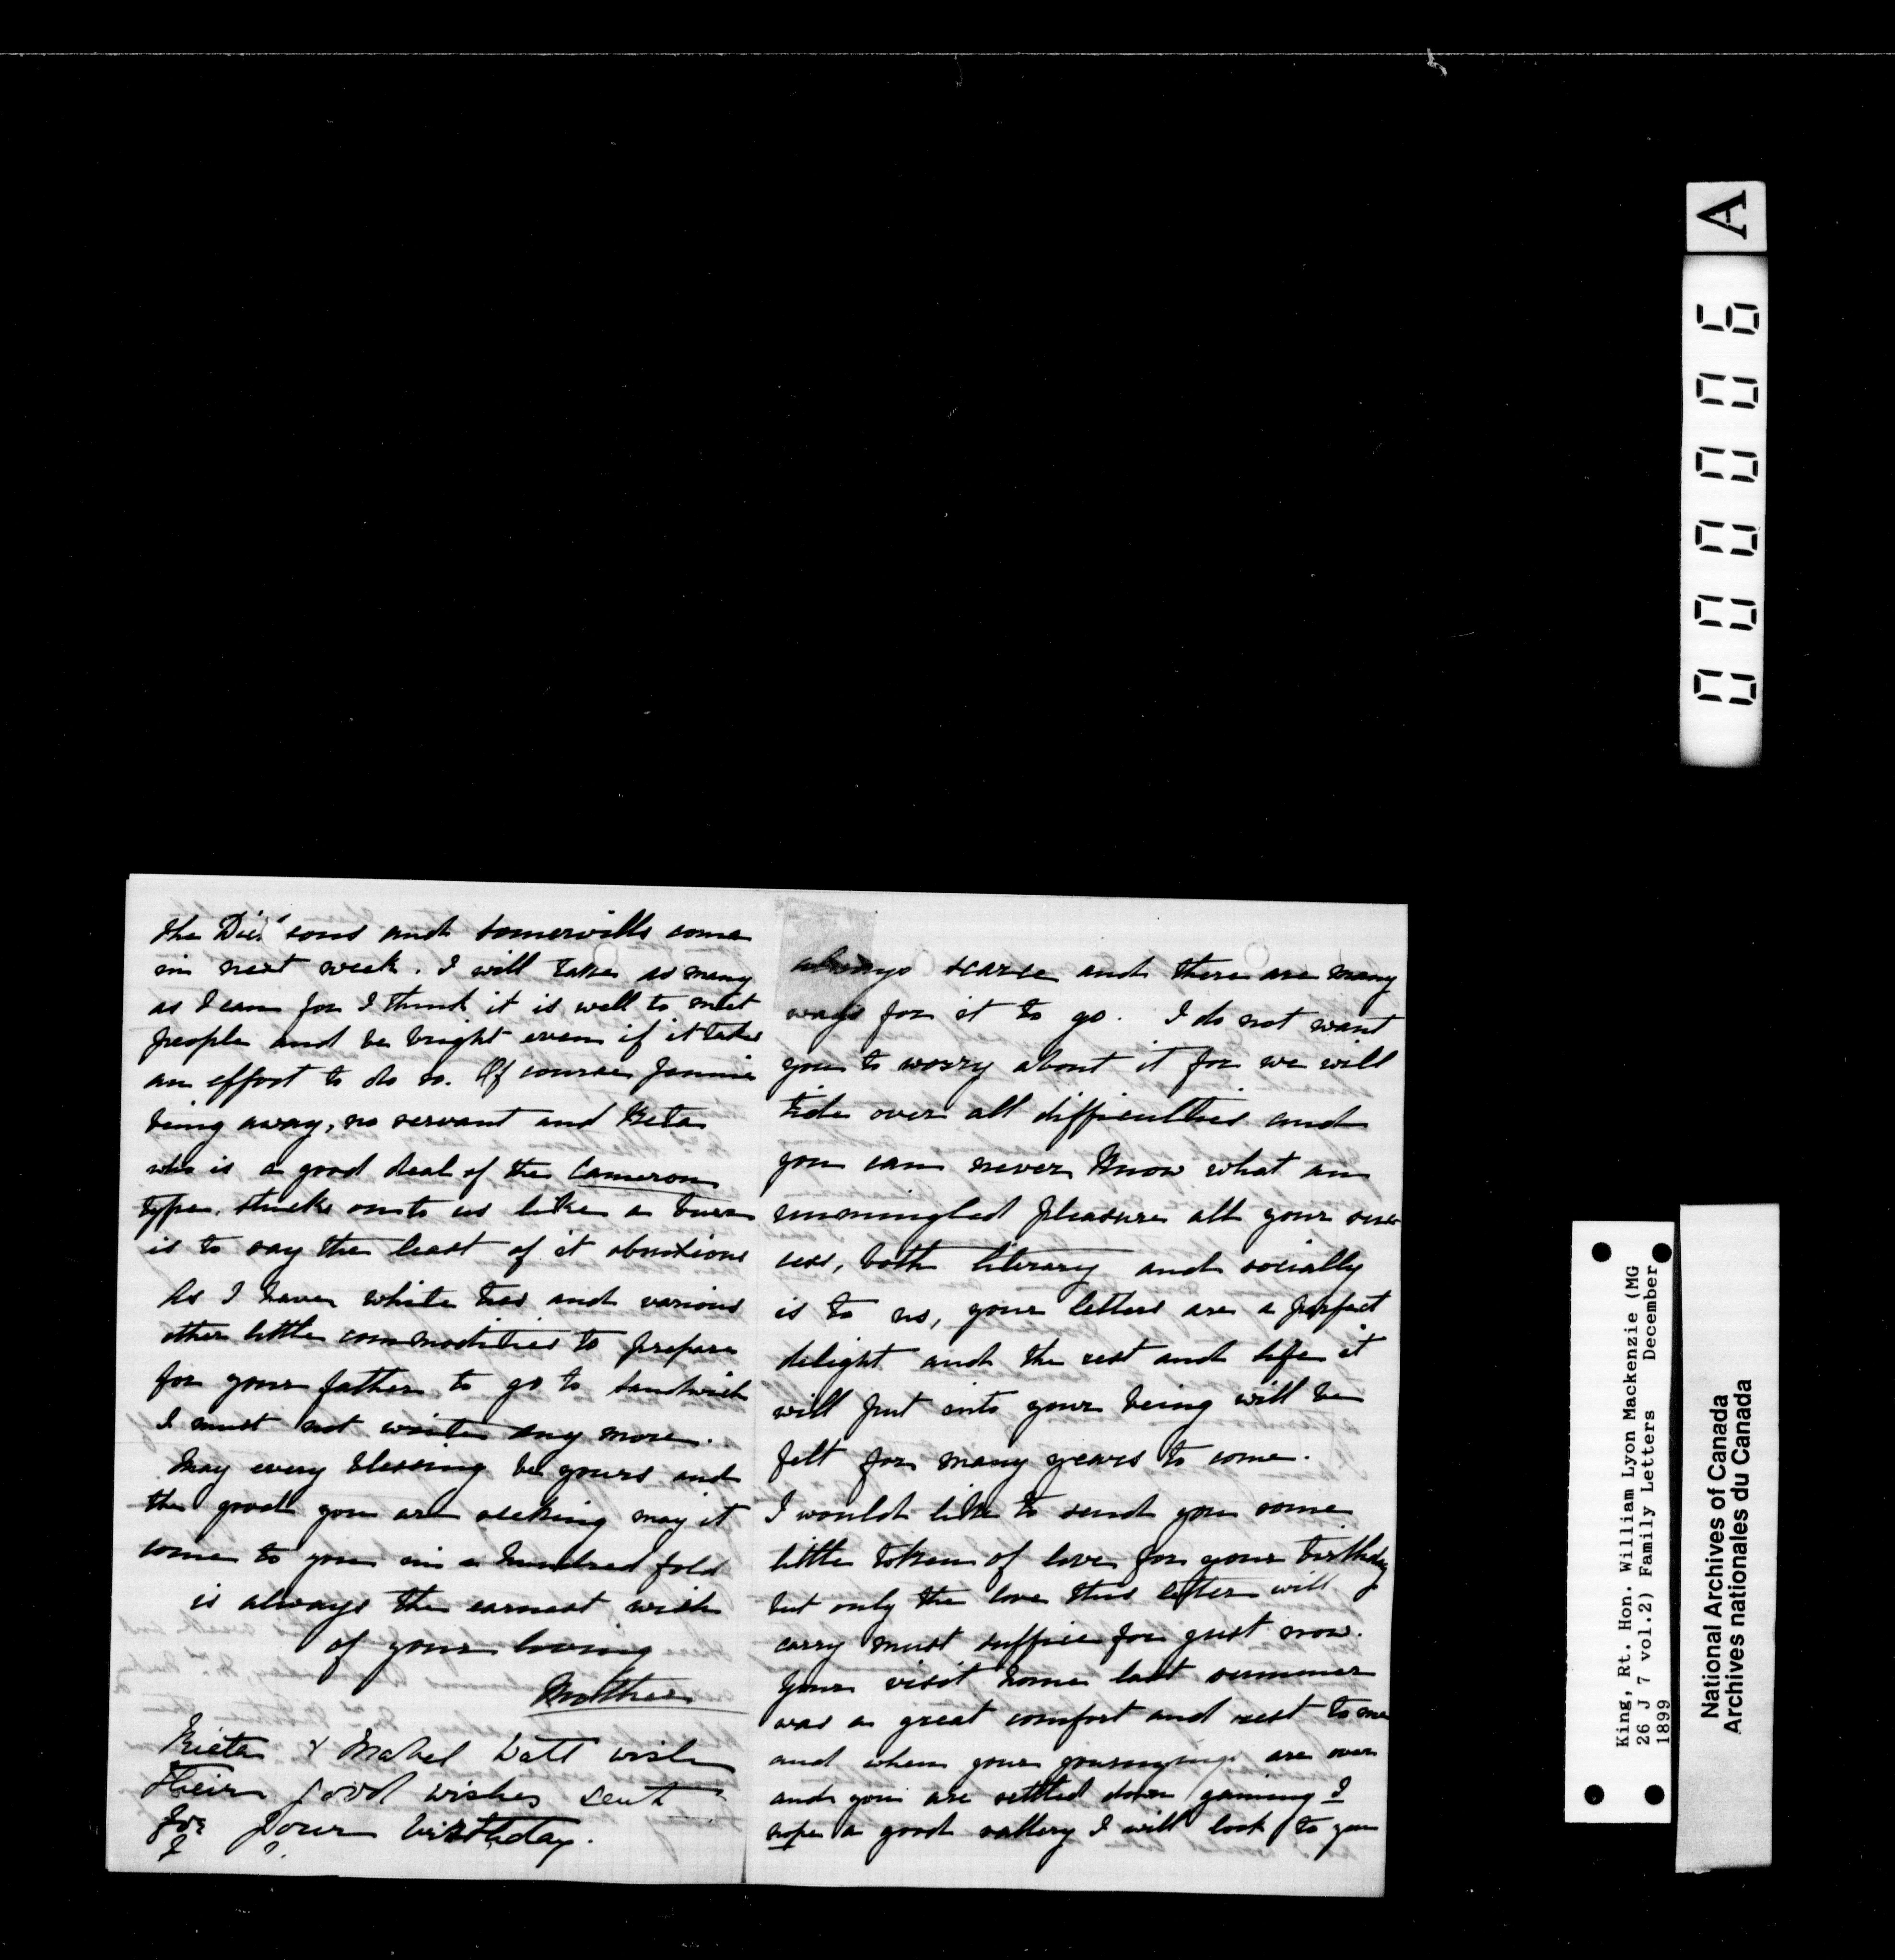 the Dicksons and Somervills come
in next week. I will take as many
as I can for I think it is well to meet
people and be bright even if it takes
an effort to do so. Of course Jennie
being away, no servant and Rieta
who is a good deal of the Cameron
type. sticks onto us like a burr
is to say the least of it obnoxious
As I have white ties and various
other little commodities to prepare
for your father to go to Sandwich
I must not write any more.
May every blessing be yours and
the good you are seeking may it
come to you in a hundred fold
is always the earnest wish
of your loving
Mother
Rieta & Mabel Watt wish
their good wishes sent
for your birthday.
always scarce and there are many
ways for it to go. I do not want
you to worry about it for we will
tide over all difficulties and
you can never know what an
unmingled pleasure all your suc-
cess, both literary and socially
is to us, your letters are a perfect
delight and the rest and life it
will put into your being will be
felt for many years to come.
I would like to send you some
little token of love for your birthday
but only the love this letter will
carry must suffice for just now.
Your visit home last summer
was a great comfort and rest to me
and when your journeyings are over
and you are settled down gaining I
hope a good sallery I will look to you
A
000006
King, Rt. Hon. William Lyon Mackenzie (MG
26 J 7 vol.2) Family Letters December
1899
National Archives of Canada
Archives nationales du Canada